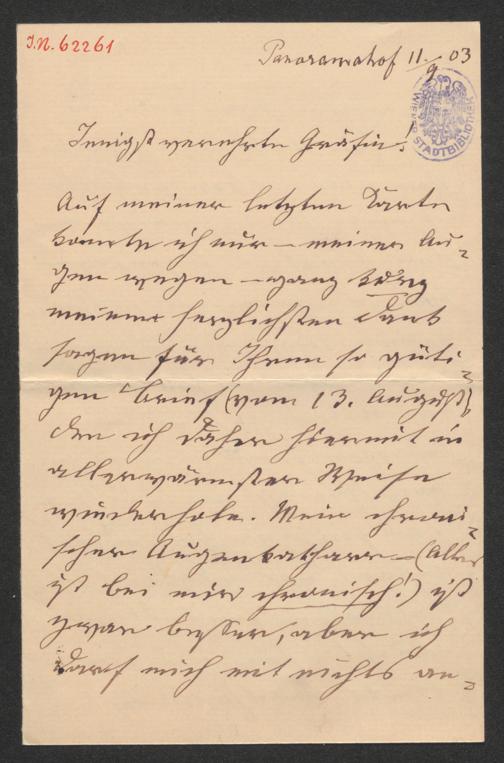 J.N. 62261
Panoramahof 11/9 03
WIENER STADTBIBLIOTHEK
Innigst verehrte Gräfin!
Auf meiner letzten Karte
konnte ich nur – meiner Au-
gen wegen – ganz kurz
meinen herzlichsten Dank
sagen für Ihren so güti-
gen Brief (vom 13. August)
den ich daher hiermit in
allerwärmster Weise
wiederhole. Mein chroni-
scher Augenkatharr – (Alles
ist bei mir chronisch!) ist
zwar besser, aber ich
darf mich mit nichts an-